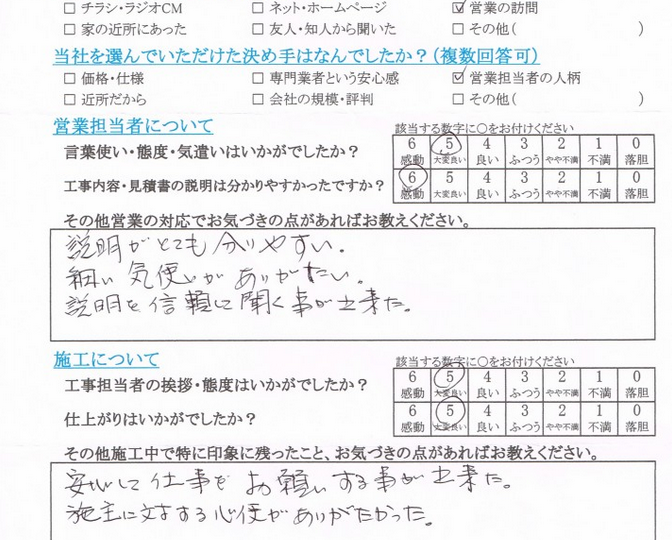 □ チラシ・ラジオCM □ ネット・ホームページ ☑ 営業の訪問
□ 家の近所にあった □ 友人・知人から聞いた □ その他( )
当社を選んでいただけた決め手はなんでしたか？(複数回答可)
□ 価格・仕様 □ 専門業者という安心感 ☑ 営業担当者の人柄
□ 近所だから □ 会社の規模・評判 □ その他( )
営業担当者について
該当する数字に○をお付けください
言葉使い・態度・気遣いはいかがでしたか？
6 5 4 3 2 1 0
感動 大変良い 良い ふつう やや不満 不満 落胆
工事内容・見積書の説明は分かりやすかったですか？
6 5 4 3 2 1 0
感動 大変良い 良い ふつう やや不満 不満 落胆
その他営業の対応でお気づきの点があればお教えください。
説明がとても分りやすい。
細い気使いがありがたい。
説明を信頼して聞く事が出来た。
施工について
該当する数字に○をお付けください
工事担当者の挨拶・態度はいかがでしたか？
6 5 4 3 2 1 0
感動 大変良い 良い ふつう やや不満 不満 落胆
仕上がりはいかがでしたか？
6 5 4 3 2 1 0
感動 大変良い 良い ふつう やや不満 不満 落胆
その他施工中で特に印象に残ったこと、お気づきの点があればお教えください。
安心して仕事をお願いする事が出来た。
施主に対する心使がありがたかった。